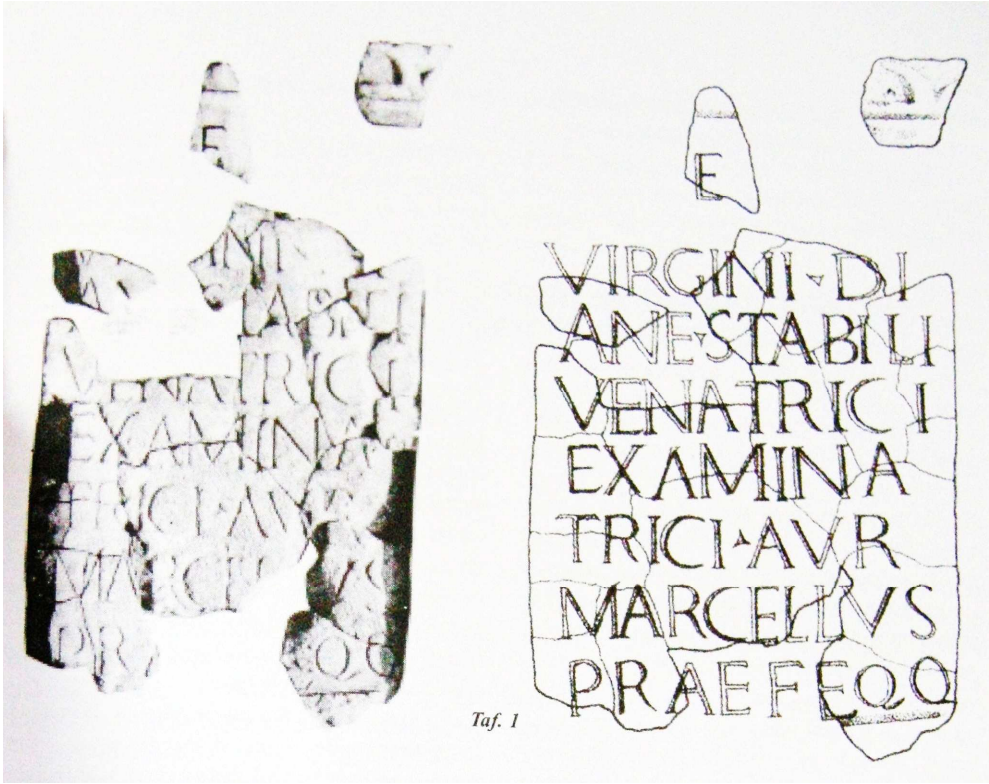 E
INI
A
TRICI
EXAMINA
TRICI·AV
MARCEL VS
PR
E
VIRGINI·DI
ANE·STABILI
VENATRICI
EXAMINA
TRICI·AVR
MARCELLVS
PRAEF EQQ
Taf. 1